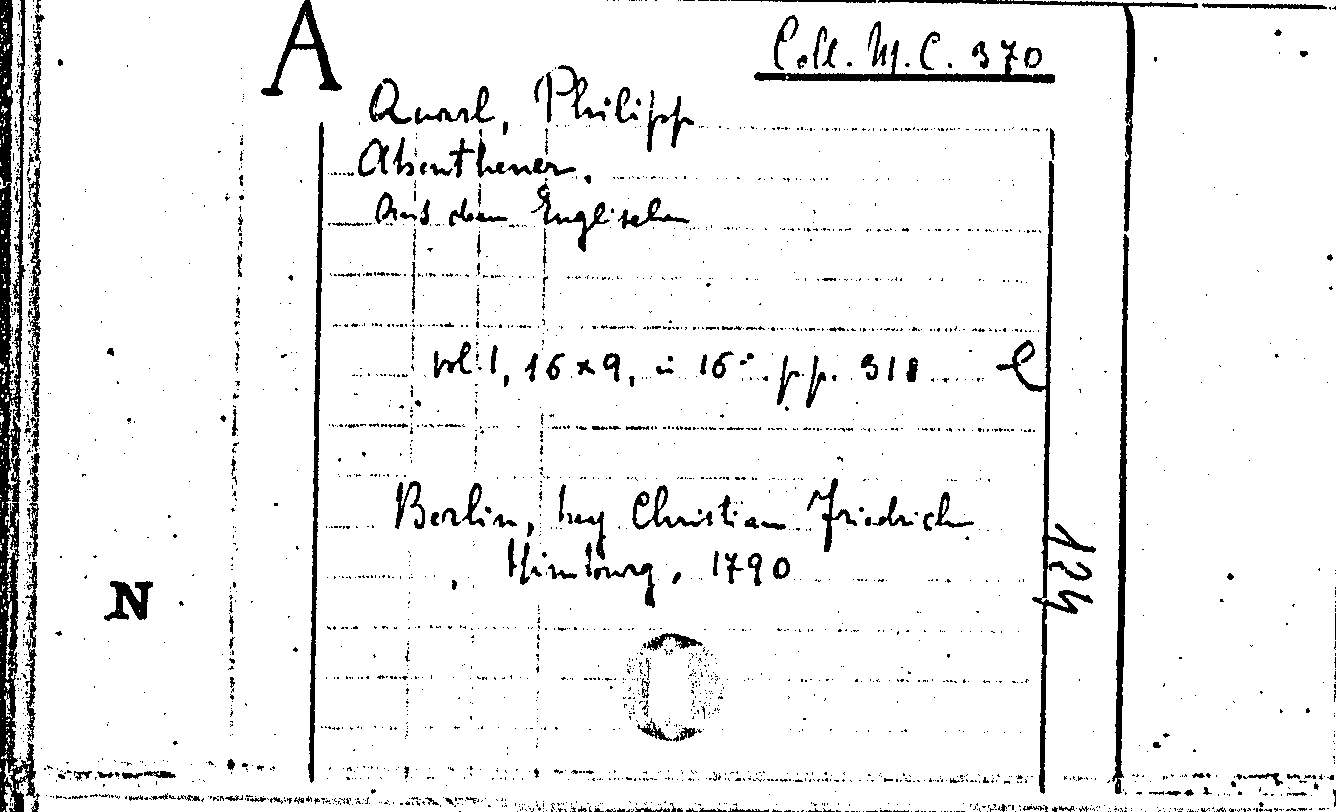 A
Coll. M. C. 370
Quarl, Philipp
Abentheuer.
Aus dem Englischen
vol. 1, 16 x 9, in 16° pp. 318
Berlin, bey Christian Friedrich
Himburg, 1790
N